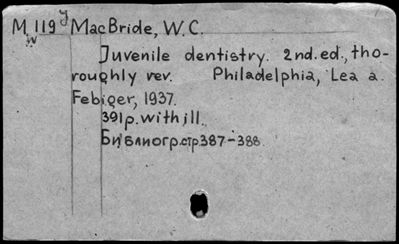 M 119 y MacBride, W.C.
w
Juvenile dentistry. 2nd.ed., tho-
roughly rev. Philadelphia, Lea a.
Febiger, 1937.
391p. with ill.
Библиогр.стр387-388.